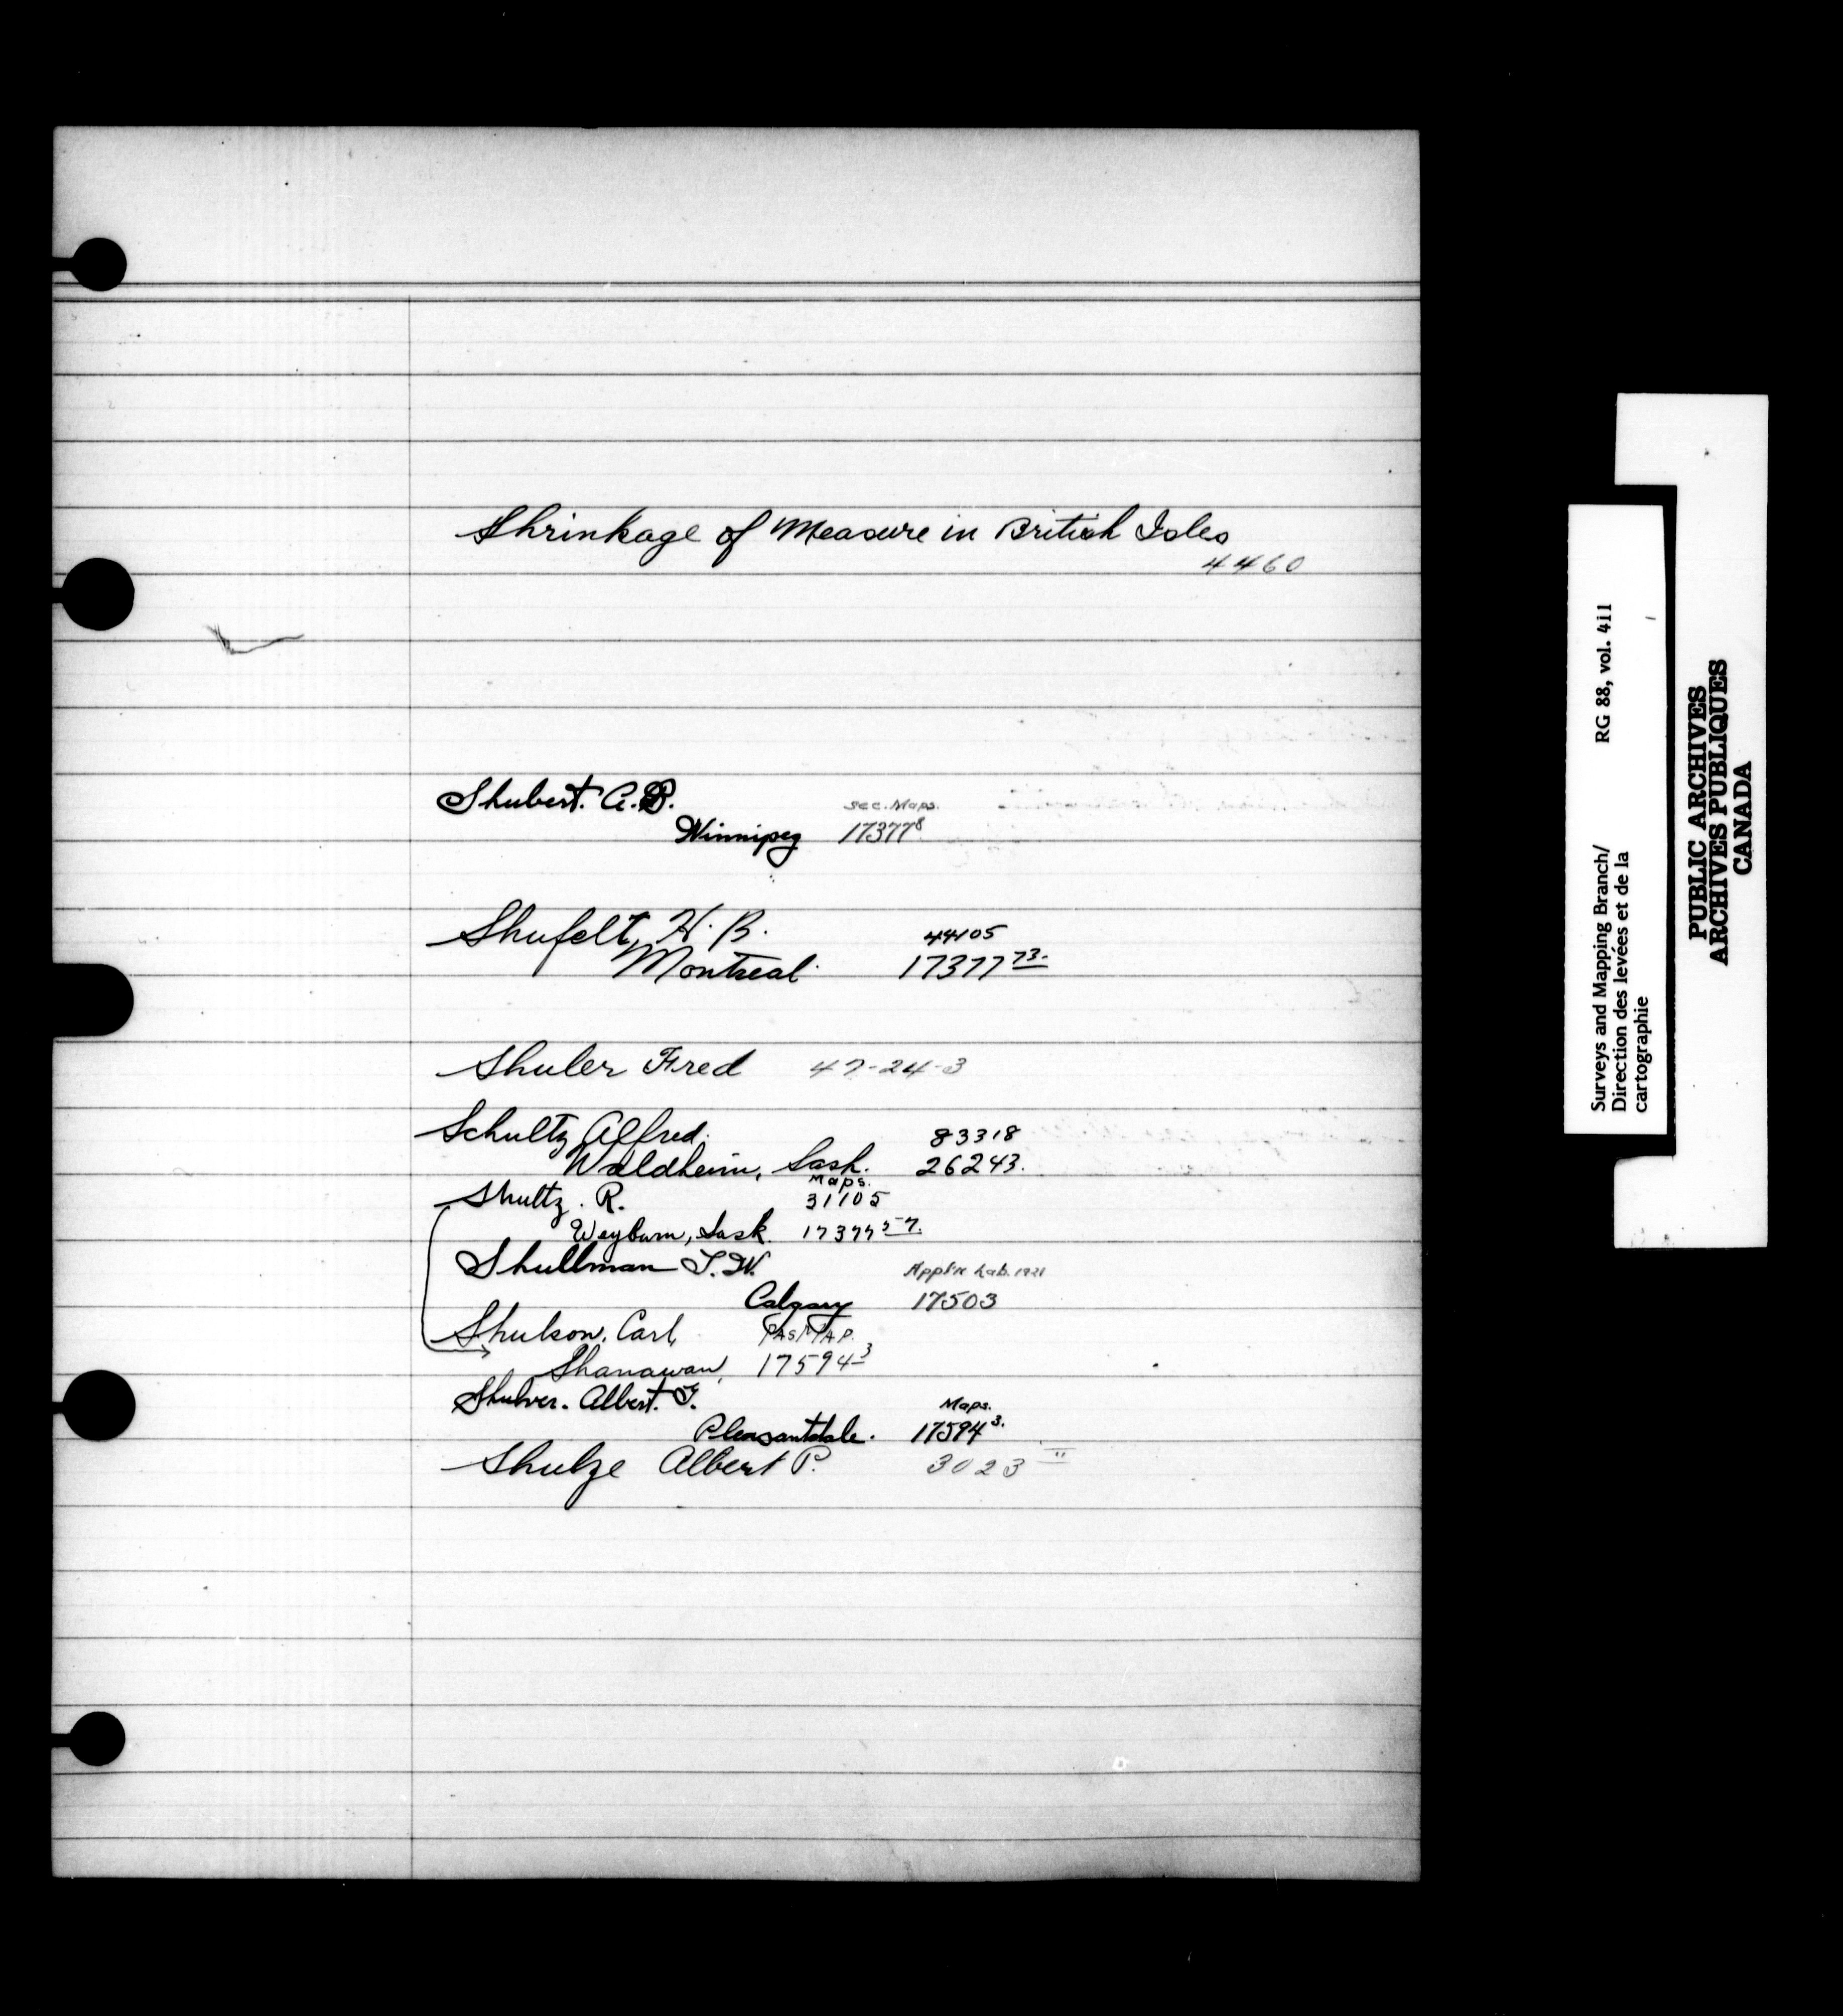 Shrinkage of Measure in British Isles
4460
Shubert. A.B.
Sec. Maps.
Winnipeg 17377⁸
Shufelt, H. B. 44105
Montreal. 17377 73.
Shuler Fred 47-24-3
Schultz Alfred. 83318
Waldheim, Sask. 26243.
Maps.
Shultz. R. 31105
Weyburn, Sask. 17377 57.
Shullman T. W. Appl'n Lab. 1921
Calgary 17503
Shulson, Carl,
Shanawan, 17594 3
Shulver. Albert. Maps.
Pleasantdale. 17594 3.
Shulze Albert P. 3023 "
Surveys and Mapping Branch/ RG 88, vol. 411
Direction des levées et de la
cartographie
PUBLIC ARCHIVES
ARCHIVES PUBLIQUES
CANADA